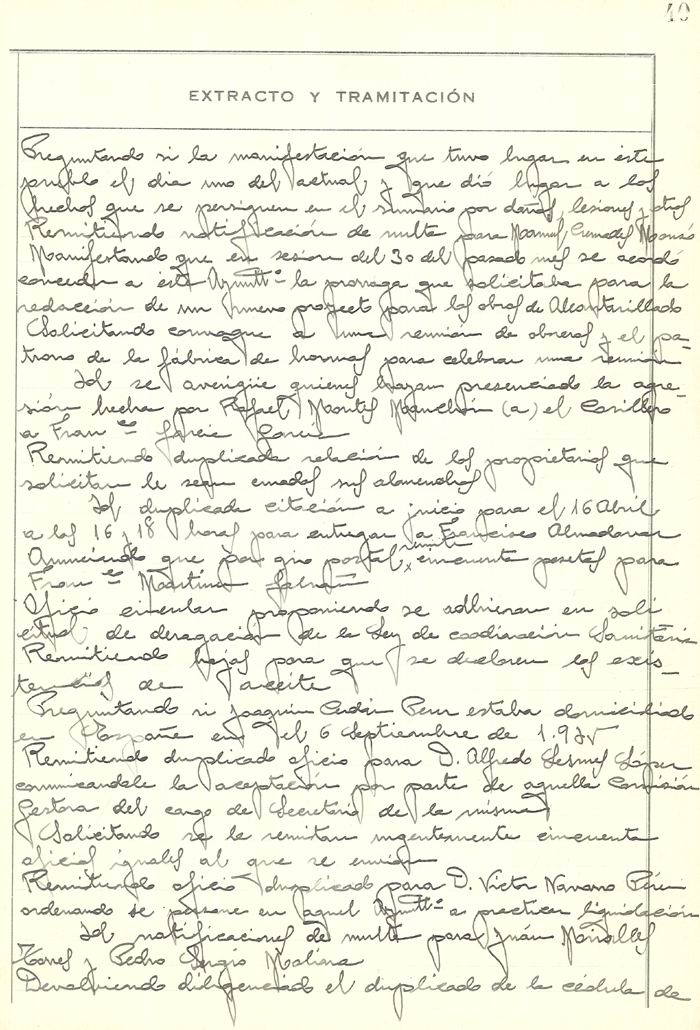 40
EXTRACTO Y TRAMITACIÓN
Preguntando si la manifestación que tuvo lugar en este
pueblo el dia uno del actual y que dió lugar a los
hechos que se persiguen en el sumario por daños, lesiones y otros
Remitiendo notificación de multa para Manuel
Manifestando que en sesion del 30 del pasado mes se acordó
conceder a este Ayuntt.º la prorroga que solicitaba para la
redacción de un nuevo proyecto para las obras de Alcantarillado
Solicitando convoque a una reunión de obreros y el pa-
trono de la fábrica de hormas para celebrar una reunión
Id se averigüe quienes hayan presenciado la agre-
sión hecha por Rafael (a) el
a Fran co Garcia Garcia
Remitiendo duplicada relación de los propietarios que
solicitan le sean sus almendros
Id duplicada citación a juicio para el 16 Abril
a las 16 y 18 horas para entregar a Francisco Almodovar
Anunciando que por giro postal remite cincuenta pesetas para
Fran co Martinez
Oficio circular proponiendo se adhieran en soli
citud de derogación de la Ley de coordinación Sanitaria
Remitiendo hojas para que se declaren las exis-
tencias de aceite
Preguntando si Joaquin Perez estaba domiciliado
en España en el 6 Septiembre de 1.935
Remitiendo duplicado oficio para D. Alfredo Lesmes López
comunicandole la aceptación por parte de aquella Comisión
Gestora del cargo de Secretario de la misma
Solicitando se le remitan urgentemente cincuenta
oficios iguales al que se envian
Remitiendo oficio duplicado para D. Victor Navarro Pérez
ordenando se persone en aquel Ayuntt.º a practicar liquidación
Id notificaciones de multa para Juán Miralles
Torres y Pedro Sergio Molina
Devolviendo diligenciado el duplicado de la cédula de